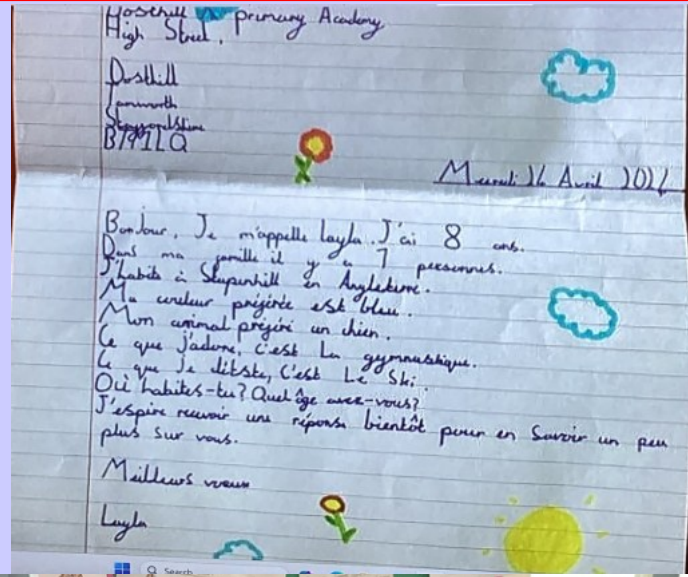 Dosthill primary Academy
High Street,
Dosthill
Tamworth
Staffordshire
B771LQ
Avril
Bonjour, Je m'appelle Layla. J'ai 8 ans.
Dans ma famille il y a 7 personnes.
J'habite à Stapenhill en Angleterre.
Ma couleur préférée est bleu.
Mon animal préféré un chien.
Ce que j'adore, c'est La gymnastique.
Ce que Je déteste, C'est Le Ski.
Où habites-tu? Quel âge avez-vous?
J'espère recevoir une réponse bientôt pour en Savoir un peu
plus Sur vous.
Meilleurs vœux
Layla
Search